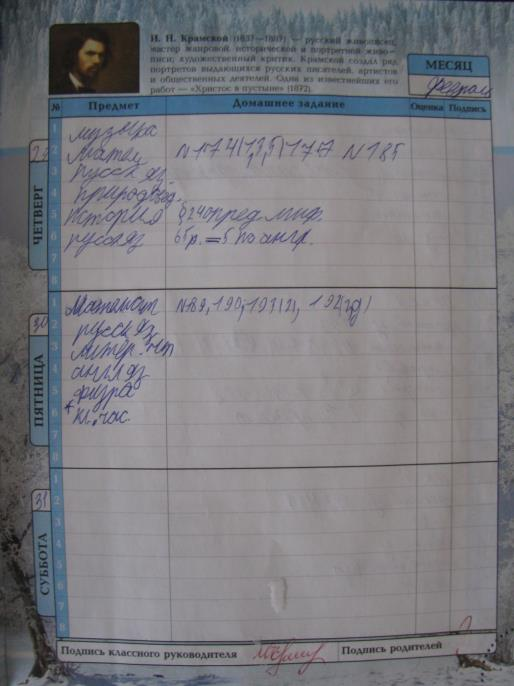 И. Н. Крамской (1837—1887) — русский живописец,
мастер жанровой, исторической и портретной живо-
писи; художественный критик. Крамской создал ряд
портретов выдающихся русских писателей, артистов
и общественных деятелей. Одна из известнейших его
работ — «Христос в пустыне» (1872).
МЕСЯЦ
февраль
№ Предмет Домашнее задание Оценка Подпись
ЧЕТВЕРГ
1
2 матем N174(1,3,5)177 N185
3 русск яз.
4 природвед.
5 История §24 опред. миф.
6 русск яз 65р. =5 по англ.
7
8
30
ПЯТНИЦА
1 Математ N189, 190, 191(2), 192(
2 русск яз
3 литер. чт
4 англ яз
5 физра
6 кл. час.
7
8
31
СУББОТА
1
2
3
4
5
6
7
8
Подпись классного руководителя
Подпись родителей